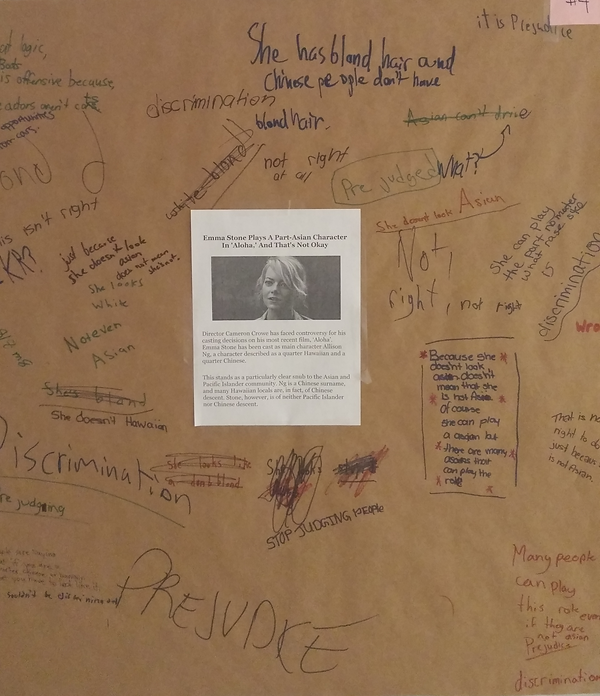 #4
it is Prejudice
logic,
is offensive because,
She has blond hair and
Chinese people don't have
blond hair.
discrimination
Asian can't drive
white blond
not right
at all
Pre judged
What?
isn't right
just because
she doesn't look
asian
does not mean
She looks
White
She doesnt look Asian
Not,
right, not right
She can play
the part no mater
what race she
is
discrimination
Not even
Asian
Emma Stone Plays A Part-Asian Character
In 'Aloha,' And That's Not Okay
Director Cameron Crowe has faced controversy for his
casting decisions on his most recent film, 'Aloha'.
Emma Stone has been cast as main character Allison
Ng, a character described as a quarter Hawaiian and a
quarter Chinese.
This stands as a particularly clear snub to the Asian and
Pacific Islander community. Ng is a Chinese surname,
and many Hawaiian locals are, in fact, of Chinese
descent. Stone, however, is of neither Pacific Islander
nor Chinese descent.
Because she
doesn't look
asian doesn't
mean that she
is not Asian.
Of course
she can play
a asian but
there are many
asians that
can play the
role
She's bland
She doesn't Hawaiian
Discrimination
she looks like
a dumb blond
judging
STOP JUDGING PEOPLE
That is no
right to
just because
is not Asian.
PREJUDICE
Many people
can play
this role even
if they are
not asian
Prejudice
discrimination